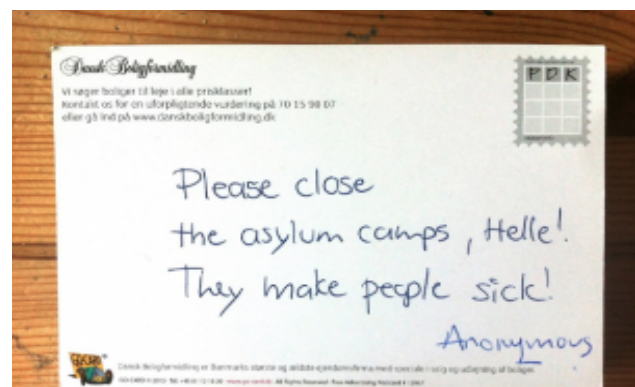 Dansk Boligformidling
Vi søger boliger til leje i alle prisklasser!
Kontakt os for en uforpligtende vurdering på 70 15 98 07
eller gå ind på www.danskboligformidling.dk
P D K
Please close
the asylum camps, Helle!
They make people sick!
Anonymous
Dansk Boligformidling er Danmarks største og ældste ejendomsfirma med speciale i salg og udlejning af boliger.
All Rights Reserved